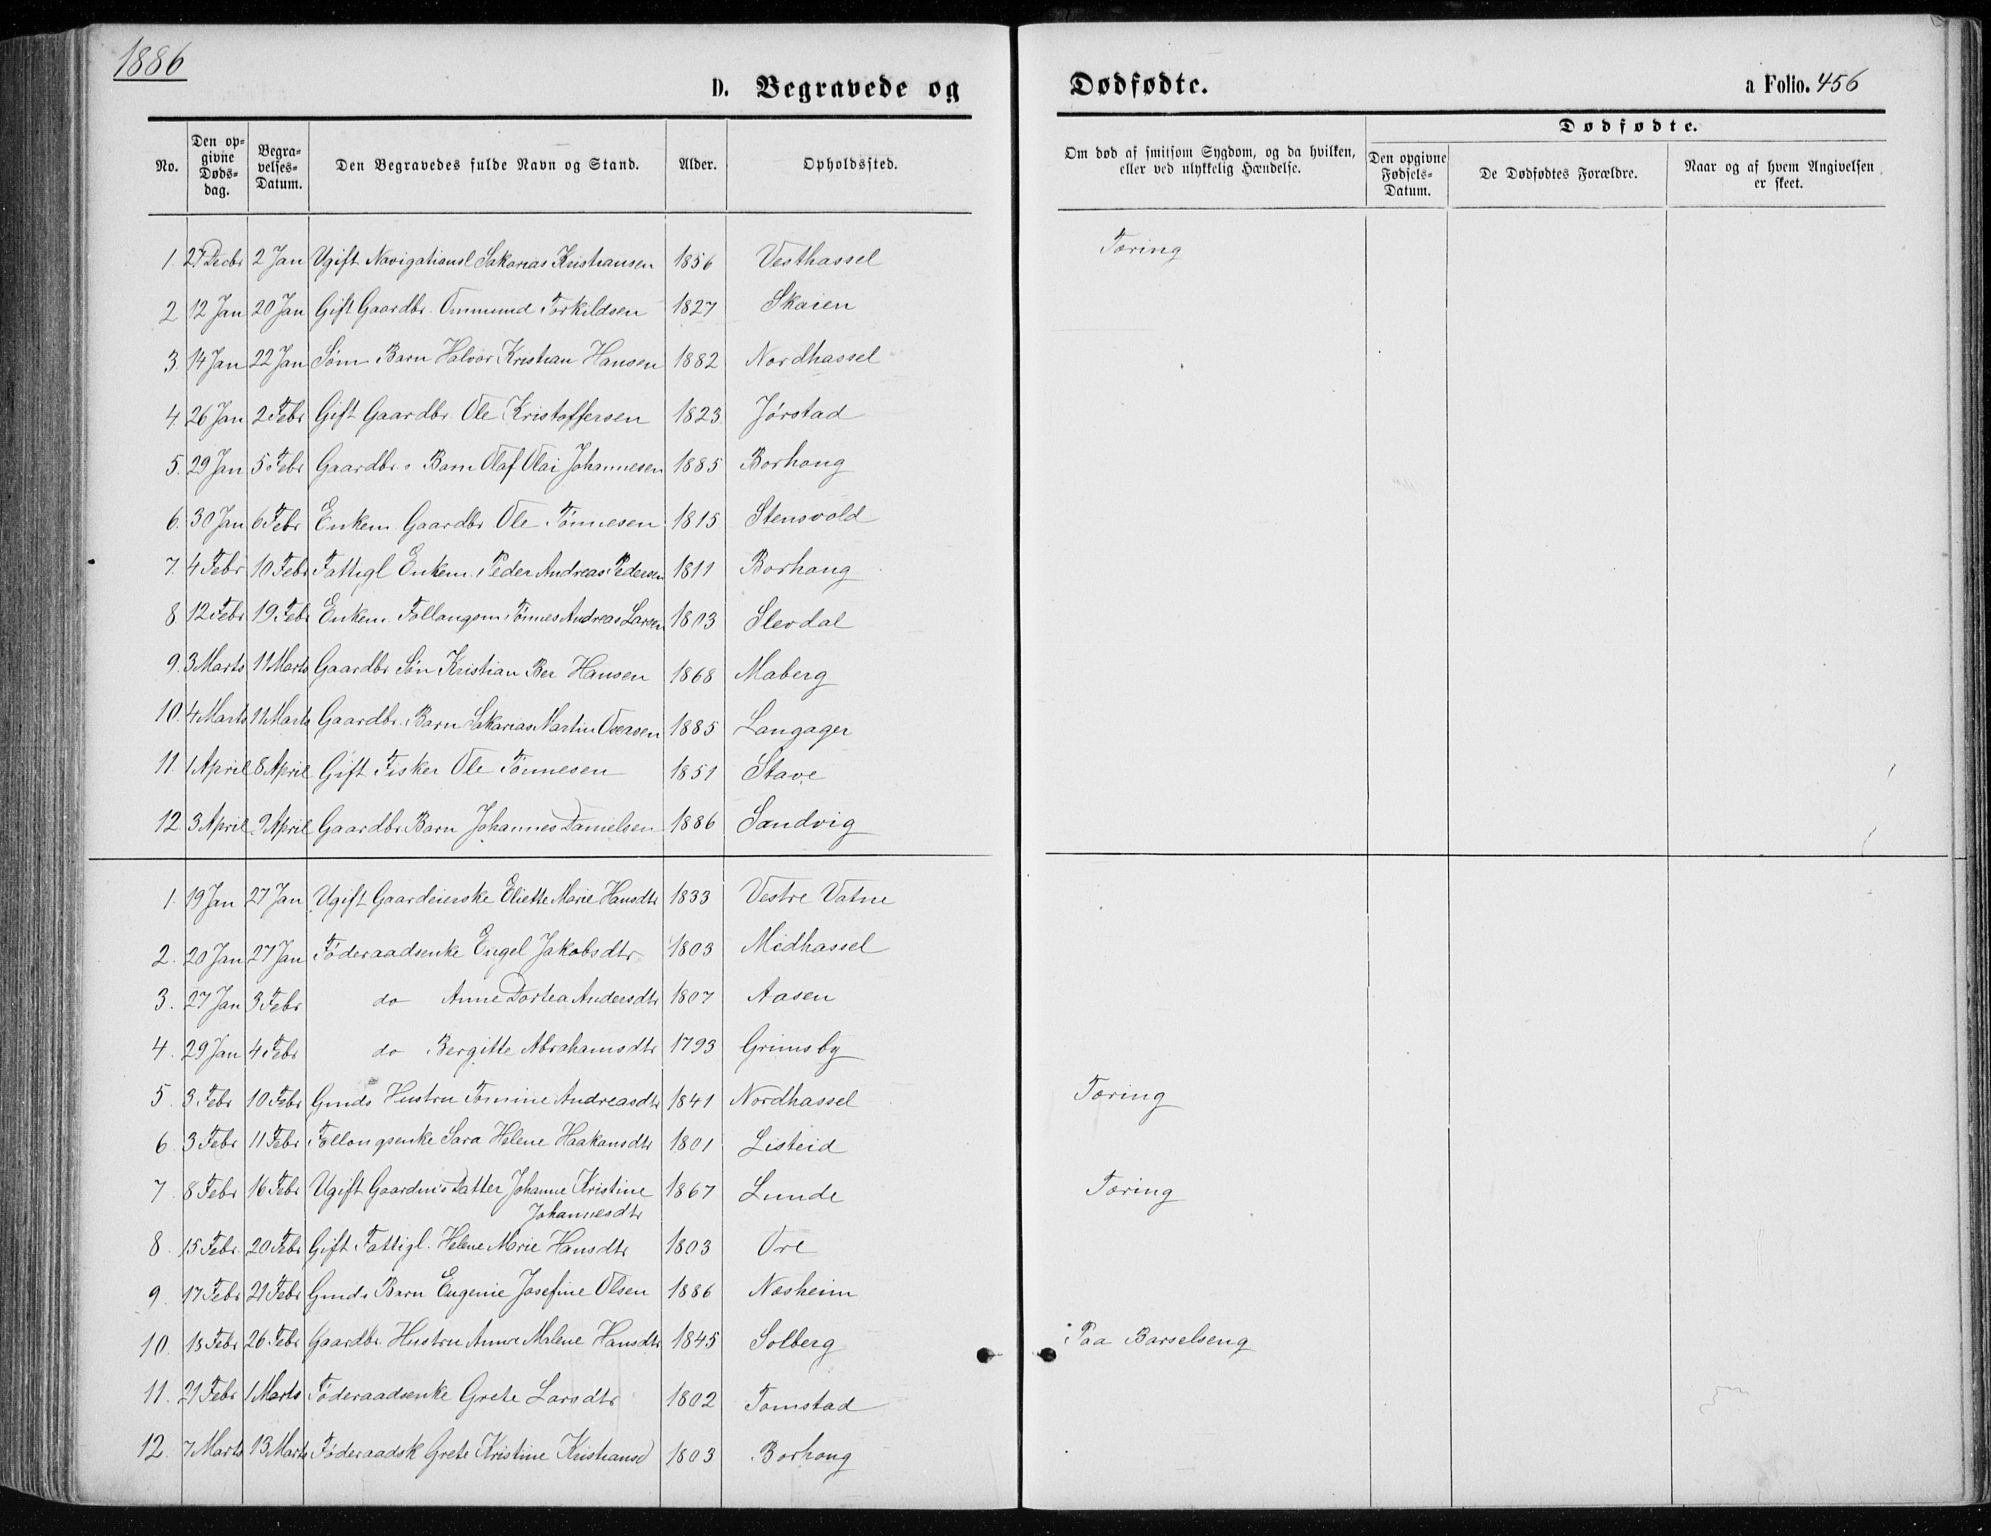 1886
D. Begravede og Dødfødte. a Folio. 456
No. Den opgivne Dødsdag. Begravelses-Datum. Den Begravedes fulde Navn og Stand. Alder. Opholdssted. Om død af smitsom Sygdom, og da hvilken, eller ved ulykkelig Hændelse. Dødfødte. Den opgivne Fødsels-Datum. De Dødfødtes Forældre. Naar og af hvem Angivelsen er skeet.
1. 27 Decbr 2 Jan Ugift Navigationsl Sakarias Kristiansen 1856 Vesthassel Tæring
2 12 Jan 20 Jan Gift Gaardbr. Ommund Torkildsen 1827 Skaien
3. 14 Jan 22 Jan Søm Barn Halvor Kristian Hansen 1882 Nordhassel
4. 26 Jan 2 Febr Gift Gaardbr. Ole Kristoffersen 1823 Jørstad
5. 29 Jan 5 Febr Gaardbr. Barn Olaf Olai Johannesen 1885 Borhaug
6. 30 Jan 6 Febr Enkem. Gaardbr Ole Tønnesen 1815 Stensvold
7. 4 Febr 10 Febr Fattigl Enkem. Peder Andreas Pedersen 1811 Borhaug
8 12 Febr 19 Febr Enkem. Follaugsm. Tønnes Andreas Larsen 1803 Slevdal
9. 3 Marts 11 Marts Gaardbr Søn Kristian Ber Hansen 1868 Maberg
10. 4 Marts 11 Marts Gaardbr. Barn Sakarias Martin 1885 Langager
11. 1 April 8 April Gift Fisker Ole Tønnesen 1851 Stave
12 3 April 9 April Gaardbr Barn Johannes Danielsen 1886 Sandvig
1. 19 Jan 27 Jan Ugift Gaardeierske Eliette Marie Hansdtr 1833 Vestre Vatne
2. 20 Jan 27 Jan Føderaadsenke Engel Jakobsdtr 1803 Midhassel
3. 27 Jan 3 Febr do Anne Dortea Andersdtr 1807 Aasen
4. 29 Jan 4 Febr do Bergitte Abrahamsdtr 1793 Grimsby
5 3 Febr 10 Febr Gmds Hustru Tomine Andreasdtr 1841 Nordhassel Tæring
6. 3 Febr 11 Febr Follougsenke Sara Helene Haakonsdtr 1801 Listeid
7 8 Febr 16 Febr Ugift Gaardm's Datter Johanne Kristine 1867 Lunde Tæring
Johannesdtr
8. 15 Febr 20 Febr Gift Fattigl. Helene Marie Hansdtr 1803 Ore
9. 17 Febr 21 Febr Gmds Barn Eugenie Josefine Olsen 1886 Næsheim
10. 18 Febr 26 Febr Gaardbr Hustru Anne Malene Hansdtr 1845 Solberg Paa Barselseng
11. 21 Febr 1 Marts Føderaadsenke Grete Larsdtr 1802 Tomstad
12. 7 Marts 13 Marts Føderaadsk Grete Kristine Kristiansd 1803 Borhaug